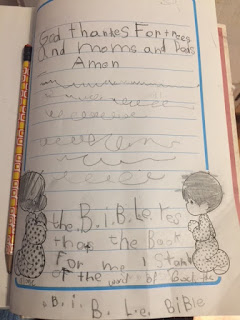 God thankes For trees
and moms and Dads
Amen
the B.i.B.L.e. yes
the the Book
For me I Stand
of the word of God the
B. i. B. L. e. BiBle